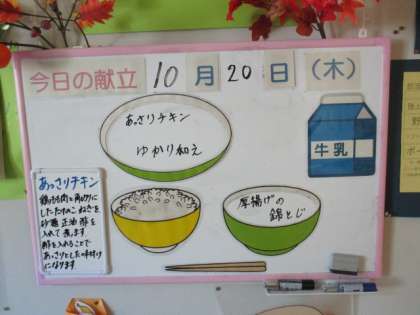 今日の献立 10月20日(木)
あっさりチキン
ゆかり和え
牛乳
厚揚げの
錦とじ
あっさりチキン
鶏もも肉と角切りに
したたけのこねぎを
砂糖 正油 酢を
入れて煮ます
酢を入れることで
あっさりとした味付け
になります